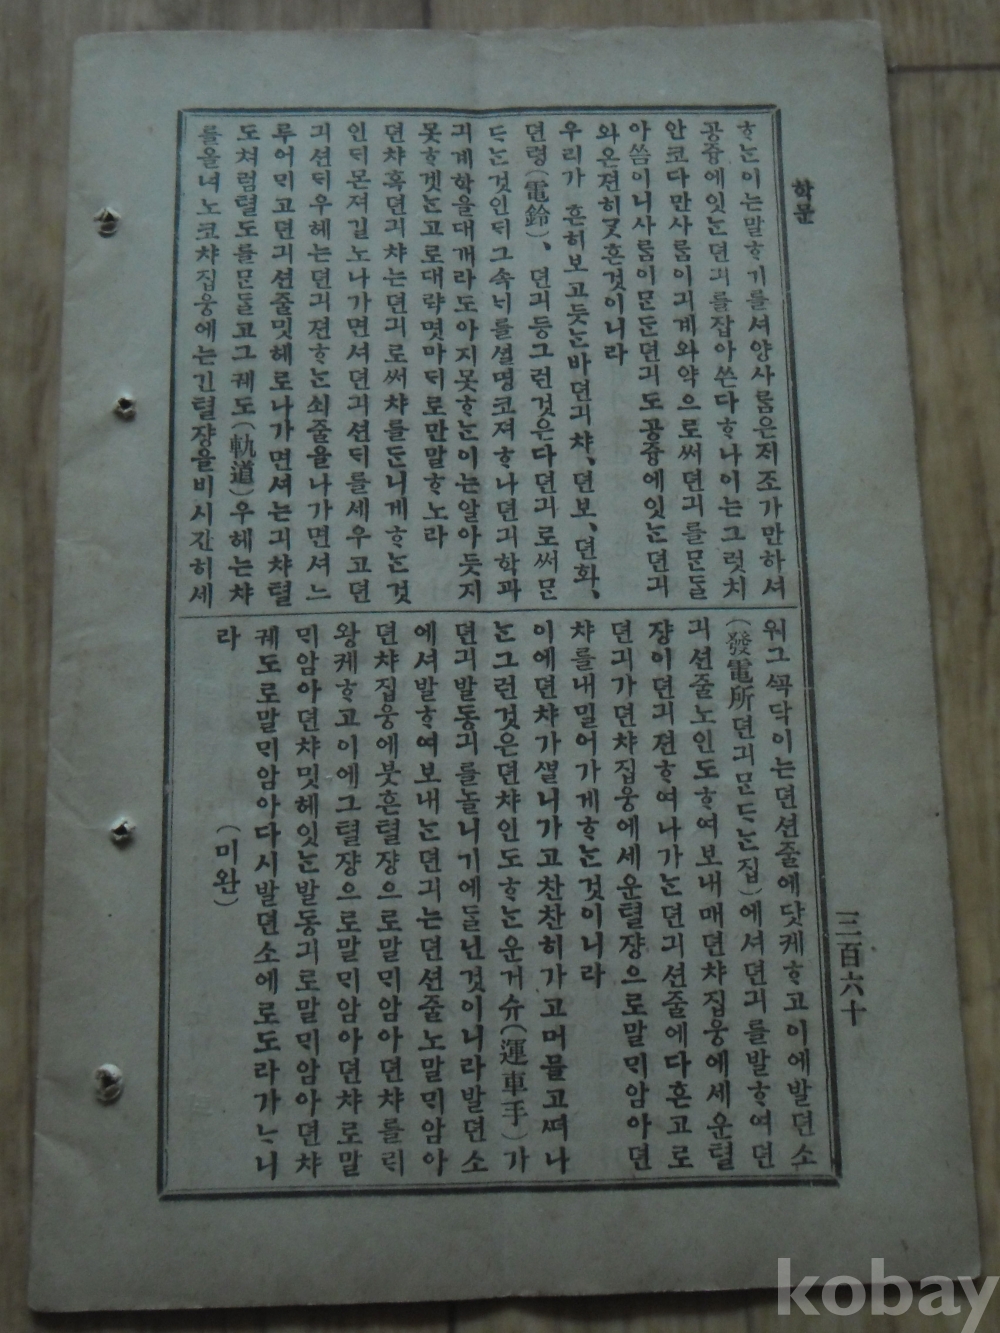 학문
ᄒᆞᄂᆞᆫ이는말ᄒᆞ기를셔양사ᄅᆞᆷ은ᄌᆡ조가만하셔
공즁에잇ᄂᆞᆫ뎐긔를잡아쓴다ᄒᆞ나이는그럿치
안코다만사ᄅᆞᆷ이긔계와약으로써뎐긔를ᄆᆞᆫᄃᆞᆯ
아씀이니사ᄅᆞᆷ이ᄆᆞᆫᄃᆞᆫ뎐긔도공즁에잇ᄂᆞᆫ뎐긔
와온젼히ᄀᆞᆺᄒᆞᆫ것이니라
우리가 흔히보고듯ᄂᆞᆫ바뎐긔챠、뎐보、뎐화、
뎐령(電鈴)、 뎐긔등그런것은다뎐긔로써ᄆᆞᆫ
ᄃᆞᄂᆞᆫ것인ᄃᆡ그속ᄂᆡ를셜명코져ᄒᆞ나뎐긔학과
긔계학을대개라도아지못ᄒᆞᄂᆞᆫ이는알아듯지
못ᄒᆞ겟ᄂᆞᆫ고로대략몃마ᄃᆡ로만말ᄒᆞ노라
뎐챠혹뎐긔챠는뎐긔로써챠를ᄃᆞᆫ니게ᄒᆞᄂᆞᆫ것
인ᄃᆡ몬져길노나가면셔뎐긔션ᄃᆡ를세우고뎐
긔션ᄃᆡ우헤는뎐긔젼ᄒᆞᄂᆞᆫ쇠줄을나가면셔느
루어ᄆᆡ고뎐긔션줄밋헤로나가면셔는긔챠텰
도쳐럼텰도를ᄆᆞᆫᄃᆞᆯ고그궤도(軌道)우헤는챠
를올녀노코챠집웅에는긴텰쟝을비시잔히세
워그ᄭᅩᆨ닥이는뎐션줄에닷케ᄒᆞ고이에발뎐소
(發電所뎐긔ᄆᆞᆫᄃᆞᄂᆞᆫ집)에셔뎐긔를발ᄒᆞ여뎐
긔션줄노인도ᄒᆞ여보내매뎐챠집웅에세운텰
쟝이뎐긔젼ᄒᆞ여나가ᄂᆞᆫ뎐긔션줄에다흔고로
뎐긔가뎐챠집웅에세운텰쟝으로말ᄆᆡ암아뎐
챠를내밀어가게ᄒᆞᄂᆞᆫ것이니라
이에뎐챠가ᄲᆞᆯ니가고찬찬히가고머믈고ᄯᅥ나
ᄂᆞᆫ그런것은뎐챠인도ᄒᆞᄂᆞᆫ운거슈(運車手)가
뎐긔발동긔를놀니기에ᄃᆞᆯ닌것이니라발뎐소
에셔발ᄒᆞ여보내ᄂᆞᆫ뎐긔는뎐션줄노말ᄆᆡ암아
뎐챠집웅에붓흔텰쟝으로말ᄆᆡ암아뎐챠를ᄅᆡ
왕케ᄒᆞ고이에그텰쟝으로말ᄆᆡ암아뎐챠로말
ᄆᆡ암아뎐챠밋헤잇ᄂᆞᆫ발동긔로말ᄆᆡ암아뎐챠
궤도로말ᄆᆡ암아다시발뎐소에로도라가ᄂᆞ니
라
(미완)
三百六十
kobay